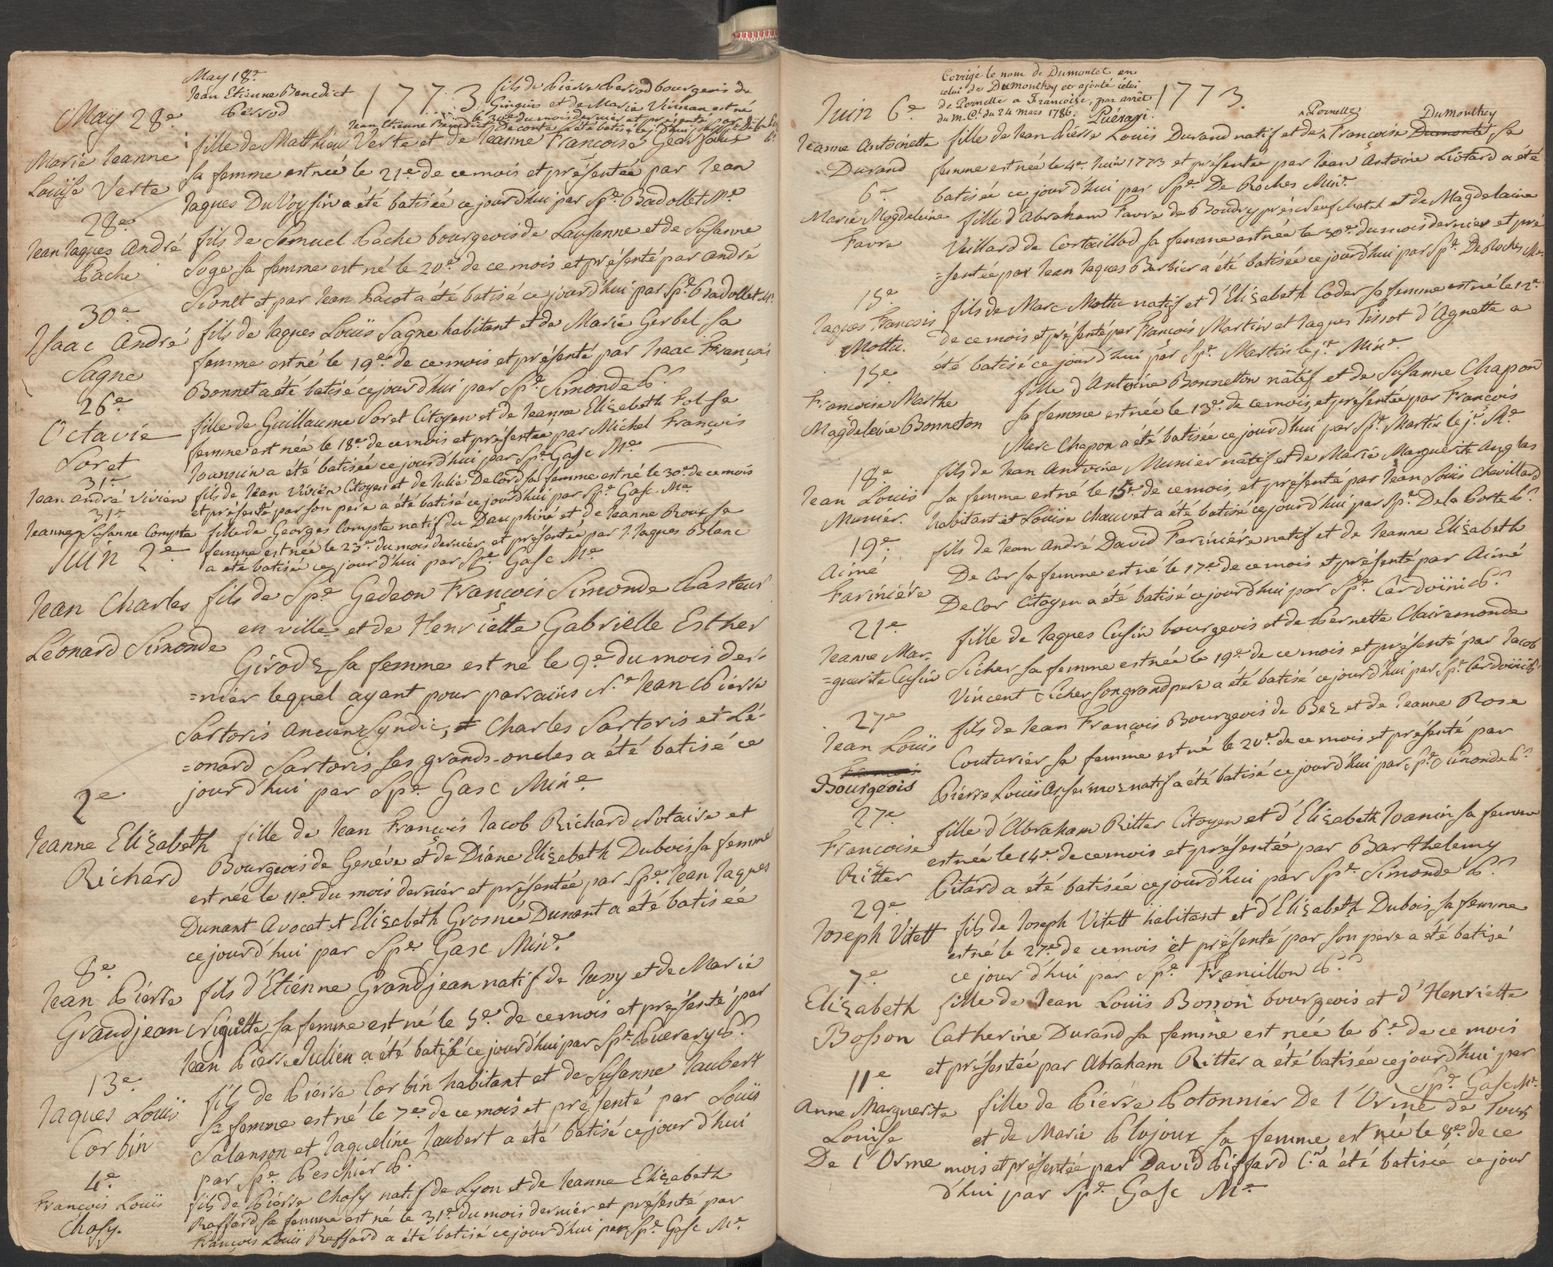 May 18e
Jean Etienne Benedict
Persod
1773.
fils de Pierre Persod bourgeois de
Gingins et de Marie Vernan est né
May 28e
Marie Jeanne
Louïse Verte
fille de Matthieu Verte et de Jeanne Françoise
sa femme est née le 21e de ce mois et présentée par Jean
Jaques DuVoysin a été batisée ce jourd'hui par Spe Badollet Me
28e
Jean Jaques André
Pache
fils de Samuel Pache bourgeois de Lausanne et de Susanne
Soge sa femme est né le 20e de ce mois et présenté par André
Sionet et par Jean Pacot a été batisé ce jourd'hui par Spe Badollet Me
30e
Isaac André
Sagne
fils de Jaques Louïs Sagne habitant et de Marie Gerbel sa
femme est né le 19e de ce mois et présenté par Isaac François
Bonnet a été batisé ce jourd'hui par Spe Simonde P.
26e
Octavie
Soret
fille de Guillaume Soret Citoyen et de Jeanne Elizabeth Fol sa
femme est née le 18e de ce mois et présentée par Michel François
Joansin a été batisée ce jourd'hui par Spe Gasc Me
31e
Jean André Vivien
fils de Jean Vivien Citoyen et de Julie DeCord sa femme est né le 30e de ce mois
et présenté par son pere a été batisé ce jourd'hui par Spe Gasc Me
31e
Jeanne Susanne Compte
fille de Georges Compte natif du Dauphiné et de Jeanne Roux sa
femme est née le 23e du mois dernier et présentée par J. Jaques Blanc
a été batisée ce jourd'hui par Spe Gasc Me
Juin 2e
Jean Charles
Léonard Simonde
fils de Spe Gedeon François Simonde Pasteur
en ville et de Henriette Gabrielle Esther
Girodz sa femme est né le 9e du mois der-
=nier lequel ayant pour parrains Nr. Jean Pierre
Sartoris Ancien Syndic, et Charles Sartoris et Lé-
=onard Sartoris ses grands-oncles a été batisé ce
jourd'hui par Spe Gasc Mine
2e
Jeanne Elizabeth
Richard
fille de Jean François Jacob Richard Notaire et
Bourgeois de Genéve et de Diane Elizabeth Dubois sa femme
est née le 11e du mois dernier et présentée par Spe Jean Jaques
Dunant Avocat et Elizabeth Grosnée Dunant a été batisée
ce jourd'hui par Spe Gasc Mine
8e
Jean Pierre
Grandjean
fils d'Etienne Grandjean natif de Jussy et de Marie
Nigette sa femme est né le 5e de ce mois et présenté par
Jean Pierre Julien a été batisé ce jourd'hui par Spe Puerary P.
13e
Jaques Louïs
Corbin
fils de Pierre Corbin habitant et de Susanne Jaubert
sa femme est né le 7e de ce mois et présenté par Louïs
Salanson et Jaqueline Jaubert a été batisé ce jourd'hui
par Spe Peschier P.
4e
François Louïs
Chasy.
fils de Pierre Chasy natif de Lyon et de Jeanne Elizabeth
Raffard sa femme est né le 31e du mois dernier et présenté par
François Louïs Raffard a été batisé ce jourd'hui par Spe Gasc Me
Corrigé le nom de Dumontet en
celui de Dumonthey et ajouté celui
de Pernelle a Francoise, par arrêt
du m. Cl. du 24 mars 1786. Puérari.
Juin 6e
1773.
Pernelle Dumonthey
Jeanne Antoinette
Durand
fille de Jean Pierre Louïs Durand natif et de Françoise Dumontet sa
femme est née le 4e Juin 1773 et présentée par Jean Antoine Liotard a été
batisée ce jourd'hui par Spe De Roches Mine
6e
Marie Magdeleine
Favre
fille d'Abraham Favre de Boudry prés Neufchatel et de Magdelaine
Veillard de Cortaillod sa femme est née le 30e du mois dernier et pré
=sentée par Jean Jaques Barbier a été batisée ce jourd'hui par Spe DeRoches Me
15e
Jaques François
Mottu.
fils de Marc Mottu natif et d'Elizabeth Coder sa femme est né le 12e
de ce mois et présenté par François Martin et Jaques Tissot d'Agnette a
été batisé ce jourd'hui par Spe Martin le je Mine
15e
Francoise Marthe
Magdeleine Bonneton
fille d'Antoine Bonneton natif et de Susanne Chapon
sa femme est née le 13e de ce mois et présentée par François
Marc Chapon a été batisée ce jourd'hui par Spe Martin le je Me
18e
Jean Louïs
Munier.
fils de Jean Antoine Munier natif et de Marie Marguerite Anglas
sa femme est né le 15e de ce mois et présenté par Jean Louïs Chevillard
habitant et Louïse Chauvet a été batisé ce jourd'hui par Spe De la Porte P.
19e
Aimé
Fariniére
fils de Jean André David Fariniére natif et de Jeanne Elizabeth
De Cor sa femme est né le 17e de ce mois et présenté par Aimé
DeCor Citoyen a été batisé ce jourd'hui par Spe Cardoini P.
21e
Jeanne Mar-
=guerite Cusin
fille de Jaques Cusin bourgeois et de Pernette Clairemonde
Sicher sa femme est née le 19e de ce mois et présenté par Jacob
Vincent Sicher son grand pere a été batisé ce jourd'hui par Spe Cardoini P.
27e
Jean Louïs
Bourgeois
fils de Jean François Bourgeois de Bez et de Jeanne Rose
Couturier sa femme est né le 20e de ce mois et présenté par
Pierre Louïs natif a été batisé ce jourd'hui par Spe Simonde P.
27e
Françoise
Ritter
fille d'Abraham Ritter Citoyen et d'Elizabeth Joanin sa femme
est née le 14e de ce mois et présentée par Barthelemy
Pitard a été batisée ce jourd'hui par Spe Simonde P.
29e
Joseph Vitett
fils de Joseph Vitett habitant et d'Elizabeth Dubois sa femme
est né le 27e de ce mois et présenté par son pere a été batisé
ce jourd'hui par Spe Francillon P.
7e
Elizabeth
Bosson
fille de Jean Louïs Bosson bourgeois et d'Henriette
Catherine Durand sa femme est née le 6e de ce mois
et présentée par Abraham Ritter a été batisée ce jourd'hui par
Spe Gasc Me
11e
Anne Marguerite
Louïse
De l'Orme
fille de Pierre Potonnier De l'Orme de Tours
et de Marie Plojoux sa femme est née le 8e de ce
mois et présentée par David Piffard Cn a été batisée ce jour
d'hui par Spe Gasc Me